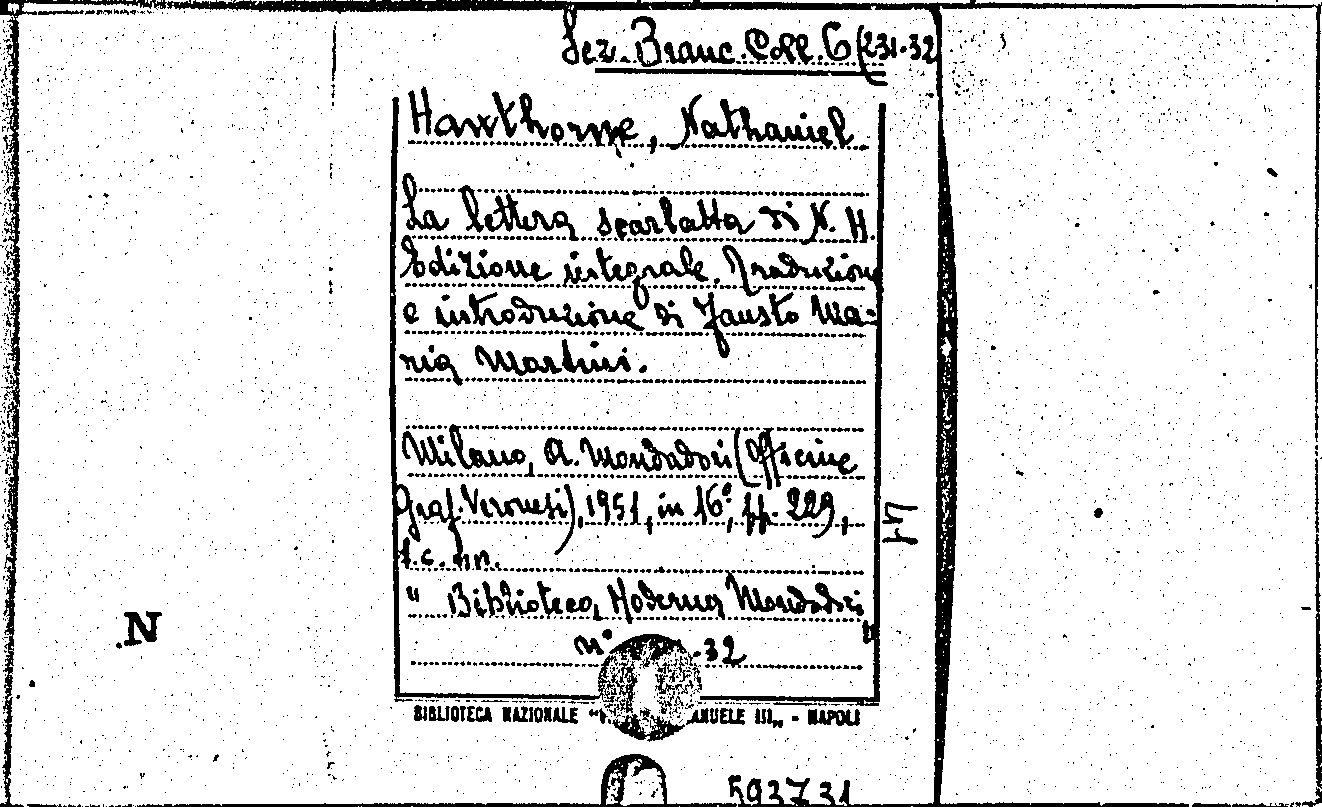 Sez. Branc. Coll. G (231-32
Hawthorne, Nathaniel
La lettera scarlatta di N. H.
Edizione integrale. Traduzione
e introduzione di Fausto Ma-
ria Martini.
Milano, A. Mondadori (Officine
Graf. Veronesi), 1951, in 16°, pp. 229,
1 c. nn.
" Biblioteca Moderna Mondadori "
n° .32
BIBLIOTECA NAZIONALE " ANUELE III„ - NAPOLI
593731
N